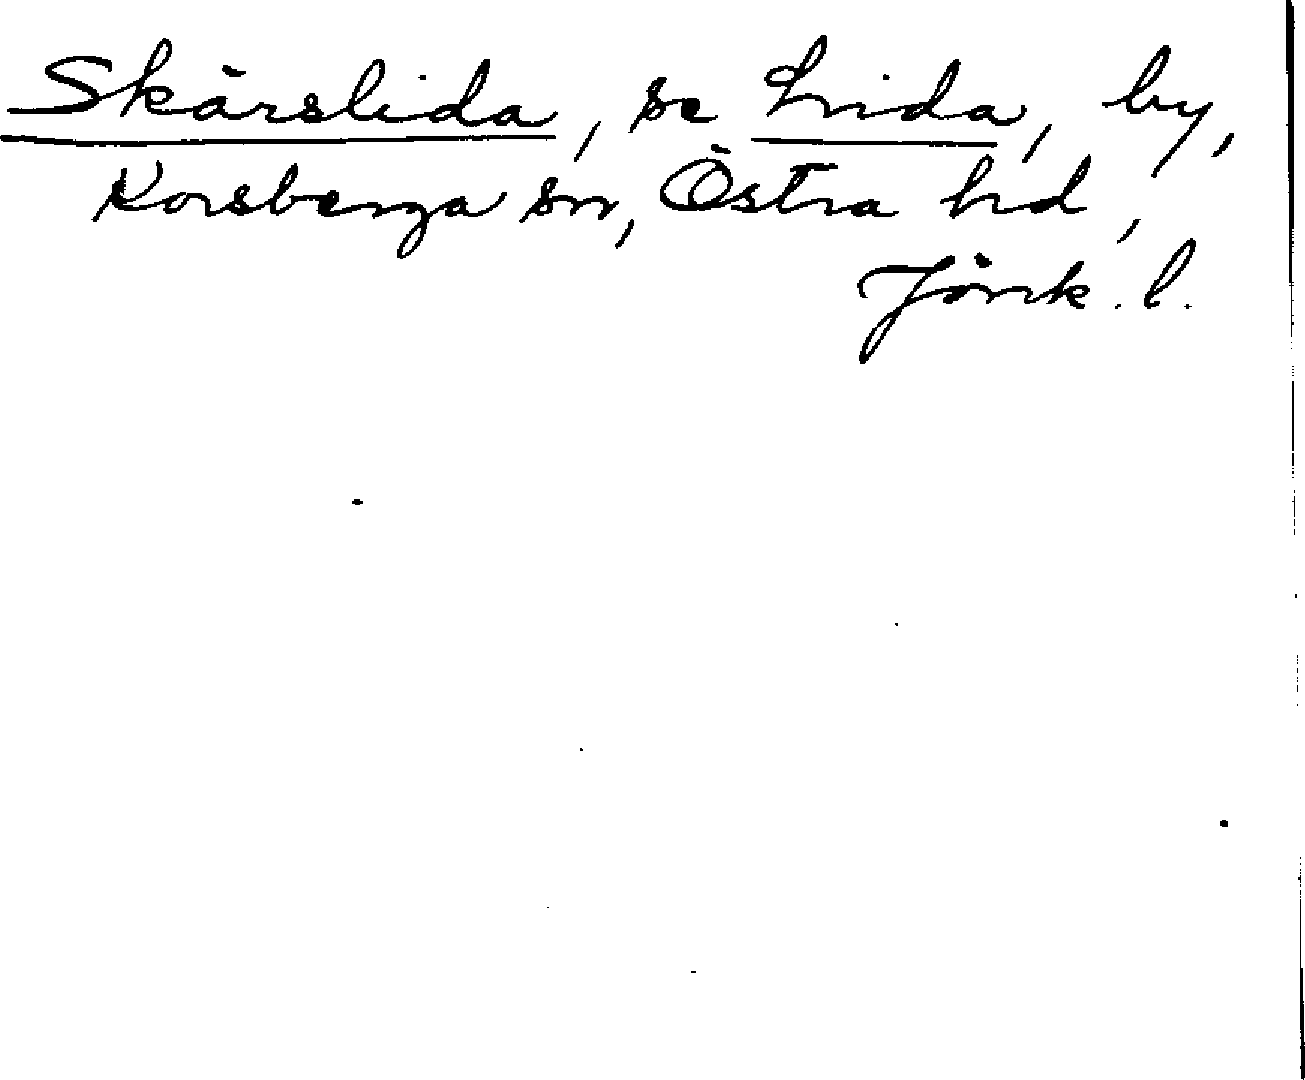 Skärslida, se Lida, by,
Korsberga sn, Östra hd,
Jönk. l.